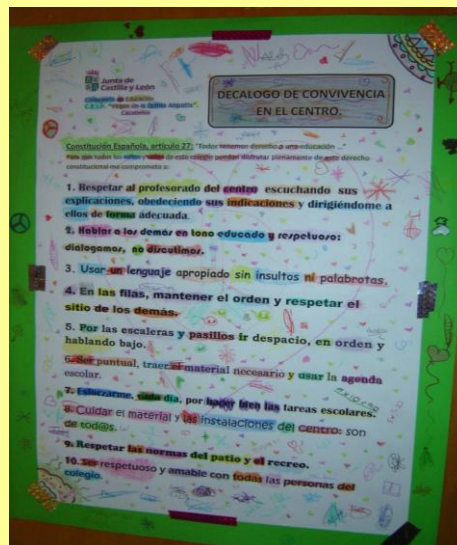 Junta de
Castilla y León
Consejería de Educación
C.E.I.P. "Virgen de la Quinta Angustia"
Cacabelos
DECALOGO DE CONVIVENCIA
EN EL CENTRO.
Constitución Española, artículo 27: "Todos tenemos derecho a una educación ..."
Para que todos los niños y niñas de este colegio puedan disfrutar plenamente de este derecho
constitucional me comprometo a:
1. Respetar al profesorado del centro escuchando sus
explicaciones, obedeciendo sus indicaciones y dirigiéndome a
ellos de forma adecuada.
2. Hablar a los demás en tono educado y respetuoso:
dialogamos, no discutimos.
3. Usar un lenguaje apropiado sin insultos ni palabrotas.
4. En las filas, mantener el orden y respetar el
sitio de los demás.
5. Por las escaleras y pasillos ir despacio, en orden y
hablando bajo.
6. Ser puntual, traer el material necesario y usar la agenda
escolar.
7. Esforzarme, cada día, por hacer bien las tareas escolares.
8. Cuidar el material y las instalaciones del centro: son
de tod@s.
9. Respetar las normas del patio y el recreo.
10. Ser respetuoso y amable con todas las personas del
colegio.